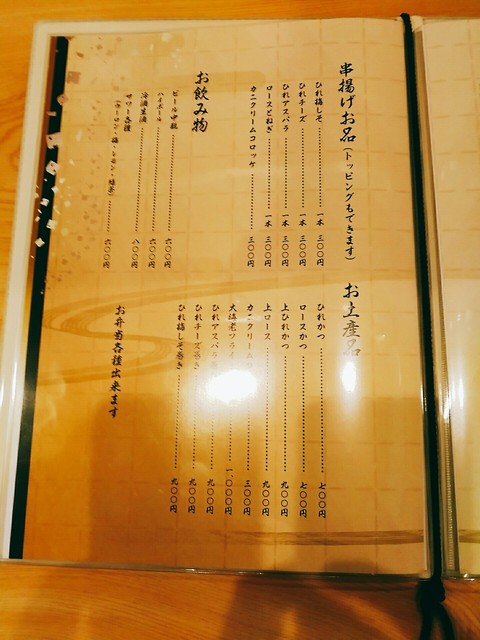 串揚げお品(トッピングもできます)
ひれ梅しそ………一本 三〇〇円
ひれチーズ………一本 三〇〇円
ひれアスパラ………一本 三〇〇円
ロースとねぎ………一本 三〇〇円
カニクリームコロッケ………三〇〇円
お飲み物
ビール中瓶………六〇〇円
ハイボール………六〇〇円
冷酒生酒………八〇〇円
サワー各種
(ウーロン、梅、レモン、緑茶)………六〇〇円
お土産品
ひれかつ………七〇〇円
ロースかつ………七〇〇円
上ひれかつ………九〇〇円
上ロース………九〇〇円
カニクリーム………三〇〇円
大海老フライ………一、〇〇〇円
ひれアスパラ………九〇〇円
ひれチーズ巻き………九〇〇円
ひれ梅しそ巻き………九〇〇円
お弁当各種出来ます